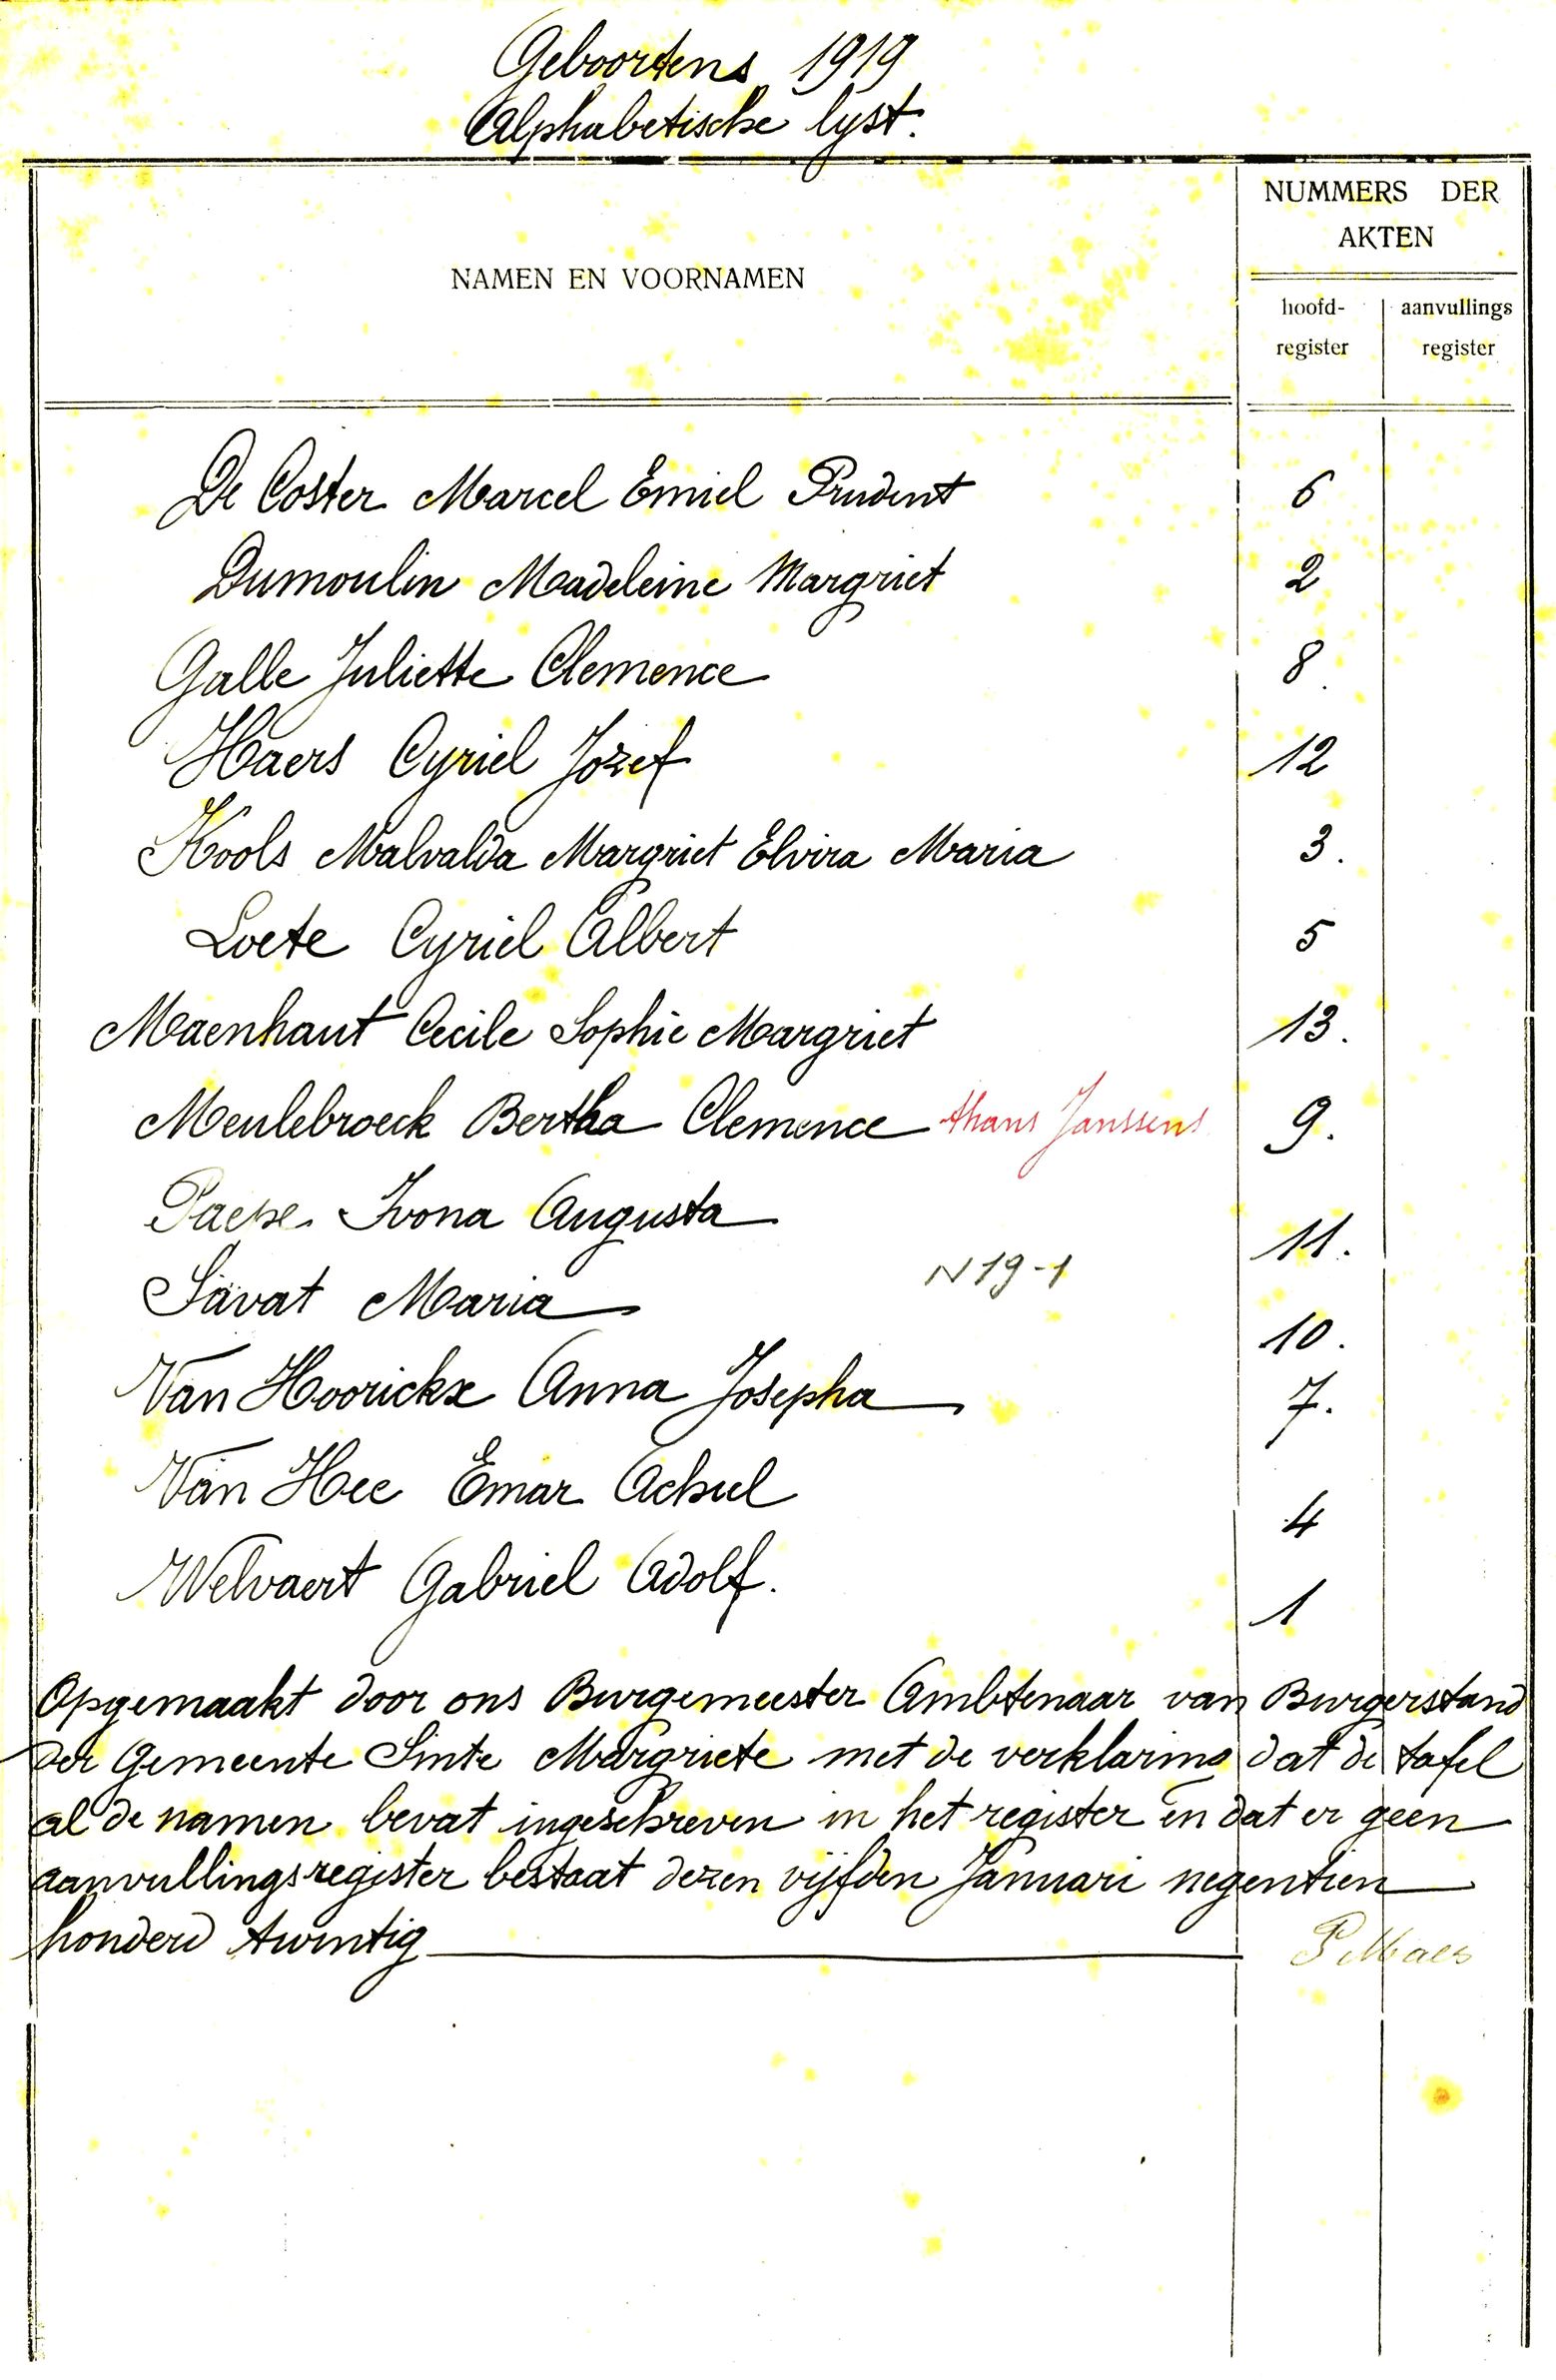 Geboortens 1919
Alphabetische lyst.
NAMEN EN VOORNAMEN
NUMMERS DER
AKTEN
hoofd-
register
aanvullings
register
De Coster Marcel Emiel Prudent 6
Dumoulin Madeleine Margriet 2
Galle Juliette Clemence 8.
Haers Cyriel Jozef 12
Kools Malvalda Margriet Elvira Maria 3.
Loete Cyriel Albert 5
Maenhaut Cecile Sophie Margriet 13.
Meulebroeck Bertha Clemence thans Janssens 9.
Paepe Ivona Augusta 11.
N 19-1
Savat Maria 10.
Van Hoorickx Anna Josepha 7.
Van Hee Emar Achiel 4
Welvaert Gabriel Adolf. 1
Opgemaakt door ons Burgemeester Ambtenaar van Burgerstand
der Gemeente Sinte Margriete met de verklaring dat de tafel
al de namen bevat ingeschreven in het register en dat er geen
aanvullingsregister bestaat dezen vijfden Januari negentien
honderd twintig
P Maes